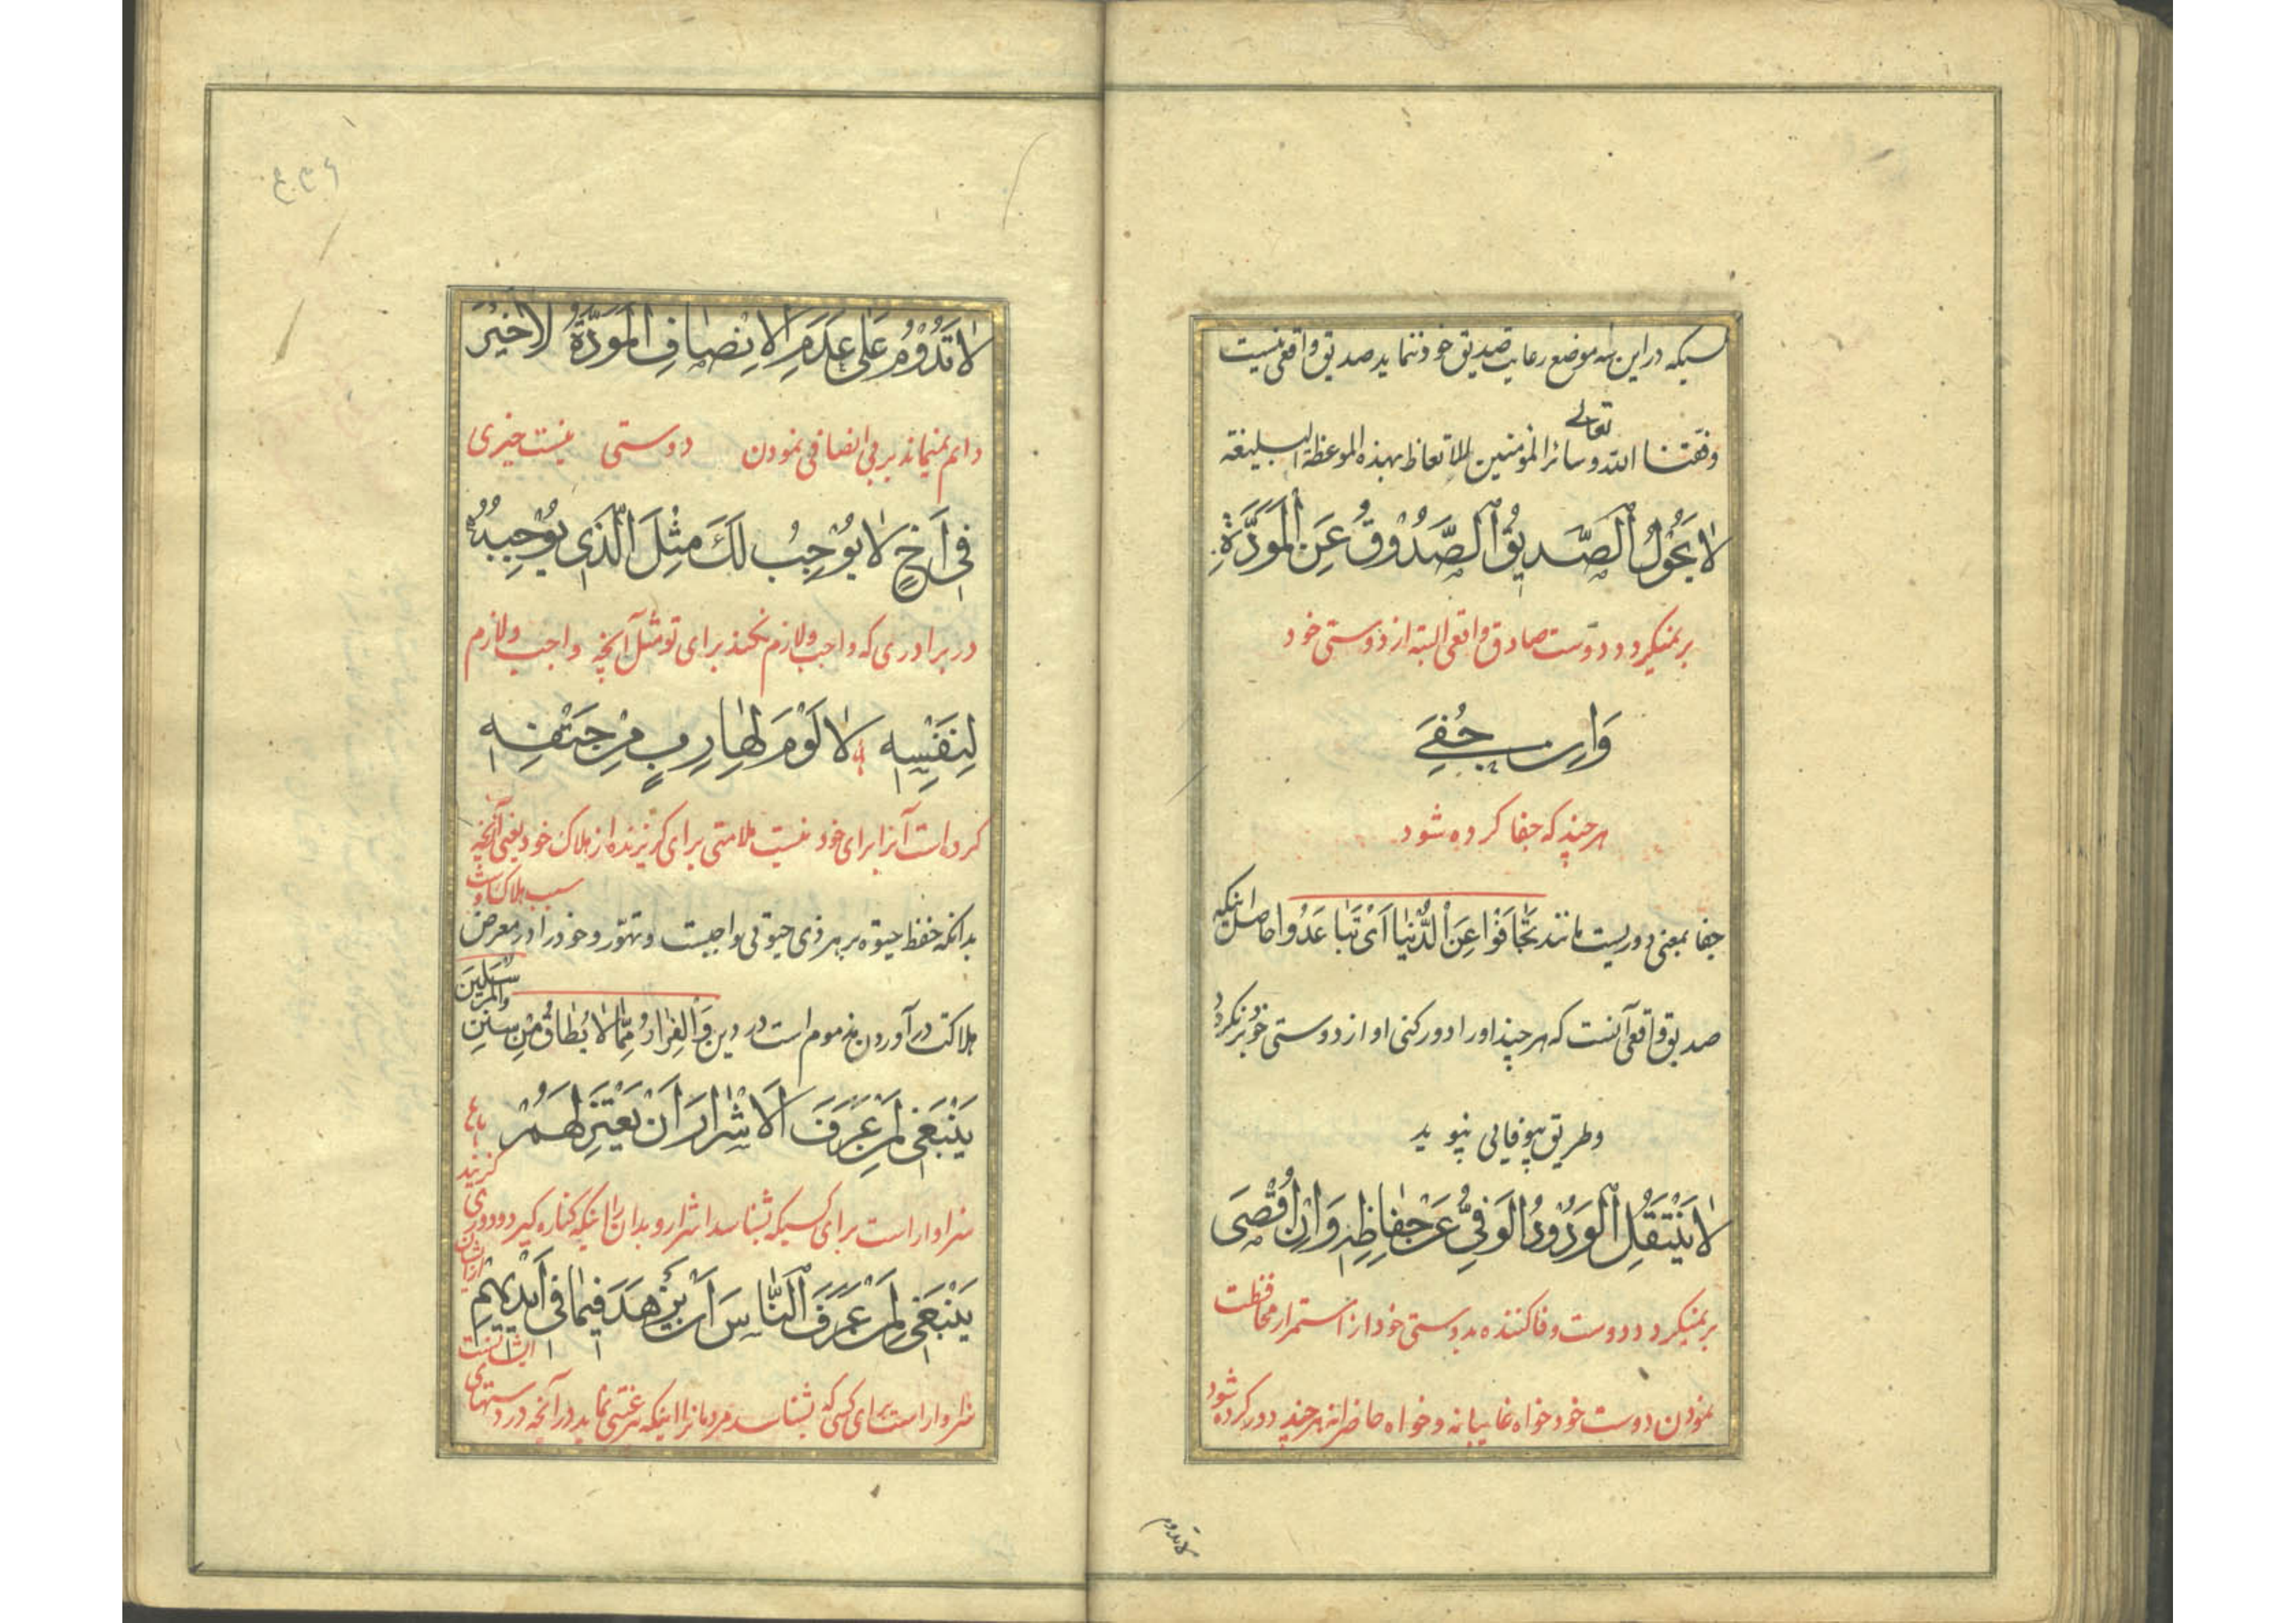 کسیکه در این سه موضع رعایت صدیق خود ننماید صدیق واقعی نیست
تعالی
وفقنا الله و سائر المؤمنین للاتعاظ بهذه الموعظة البلیغة
لَا یَحُولُ الصَّدِیقُ الصَّدُوقُ عَنِ الْمَوَدَّةِ
برنمیگردد دوست صادق واقعی البته از دوستی خود
وَاِن جُفِیَ
هر چند که جفا کرده شود
جفا بمعنی دوریست مانند تَجَافَوْا عَنِ الدُّنْیَا اَیْ تَبَاعَدُوا حاصل اینکه
صدیق واقعی آنست که هر چند او را دور کنی او از دوستی خود برنگردد
و طریق بیوفایی نپوید
لَا یَنْتَقِلُ الْوَدُودُ الْوَفِیُّ عَنْ حِفَاظِهِ وَاِنْ اُقْصِیَ
برنمیگردد دوست وفا کننده بدوستی خود از استمرار محافظت
نمودن دوست خود خواه غایبانه و خواه حاضرانه هر چند دور کرده شود
لا تدوم
لَا تَدُومُ عَلَی عَدَمِ الْاِنْصَافِ الْمَوَدَّةُ لَا خَیْرَ
دائم نمیماند بر بی انصافی نمودن دوستی نیست خیری
فِی اَخٍ لَا یُوْجِبُ لَكَ مِثْلَ الَّذِی یُوْجِبُهُ
در برادری که واجب و لازم نکند برای تو مثل آنچه واجب و لازم
لِنَفْسِهِ لَا لَوْمَ لِهَارِبٍ مِنْ حَتْفِهِ
کرده است آنرا برای خود نیست ملامتی برای گریزنده از هلاک خود یعنی آنچه
سبب هلاکت اوست
بدانکه حفظ حیوة بر هر ذی حیوتی واجبست و تهوّر و خود را در معرض
هلاکت در آوردن مذموم است در دین وَالْفِرَارُ مِمَّا لَا یُطَاقُ مِنْ سُنَنِ
الْمُرْسَلِینَ
یَنْبَغِی لِمَنْ عَرَفَ الْاَشْرَارَ اَنْ یَعْتَزِلَهُمْ
سزاوار است برای کسیکه بشناسد اشرار و بدان را اینکه کناره گیرد و دوری
گزیند
از ایشان
یَنْبَغِی لِمَنْ عَرَفَ النَّاسَ اَنْ یَزْهَدَ فِیمَا فِی اَیْدِیهِمْ
سزاوار است برای کسی که بشناسد مردمانرا اینکه بیرغبتی نماید در آنچه در دستهای
ایشانست